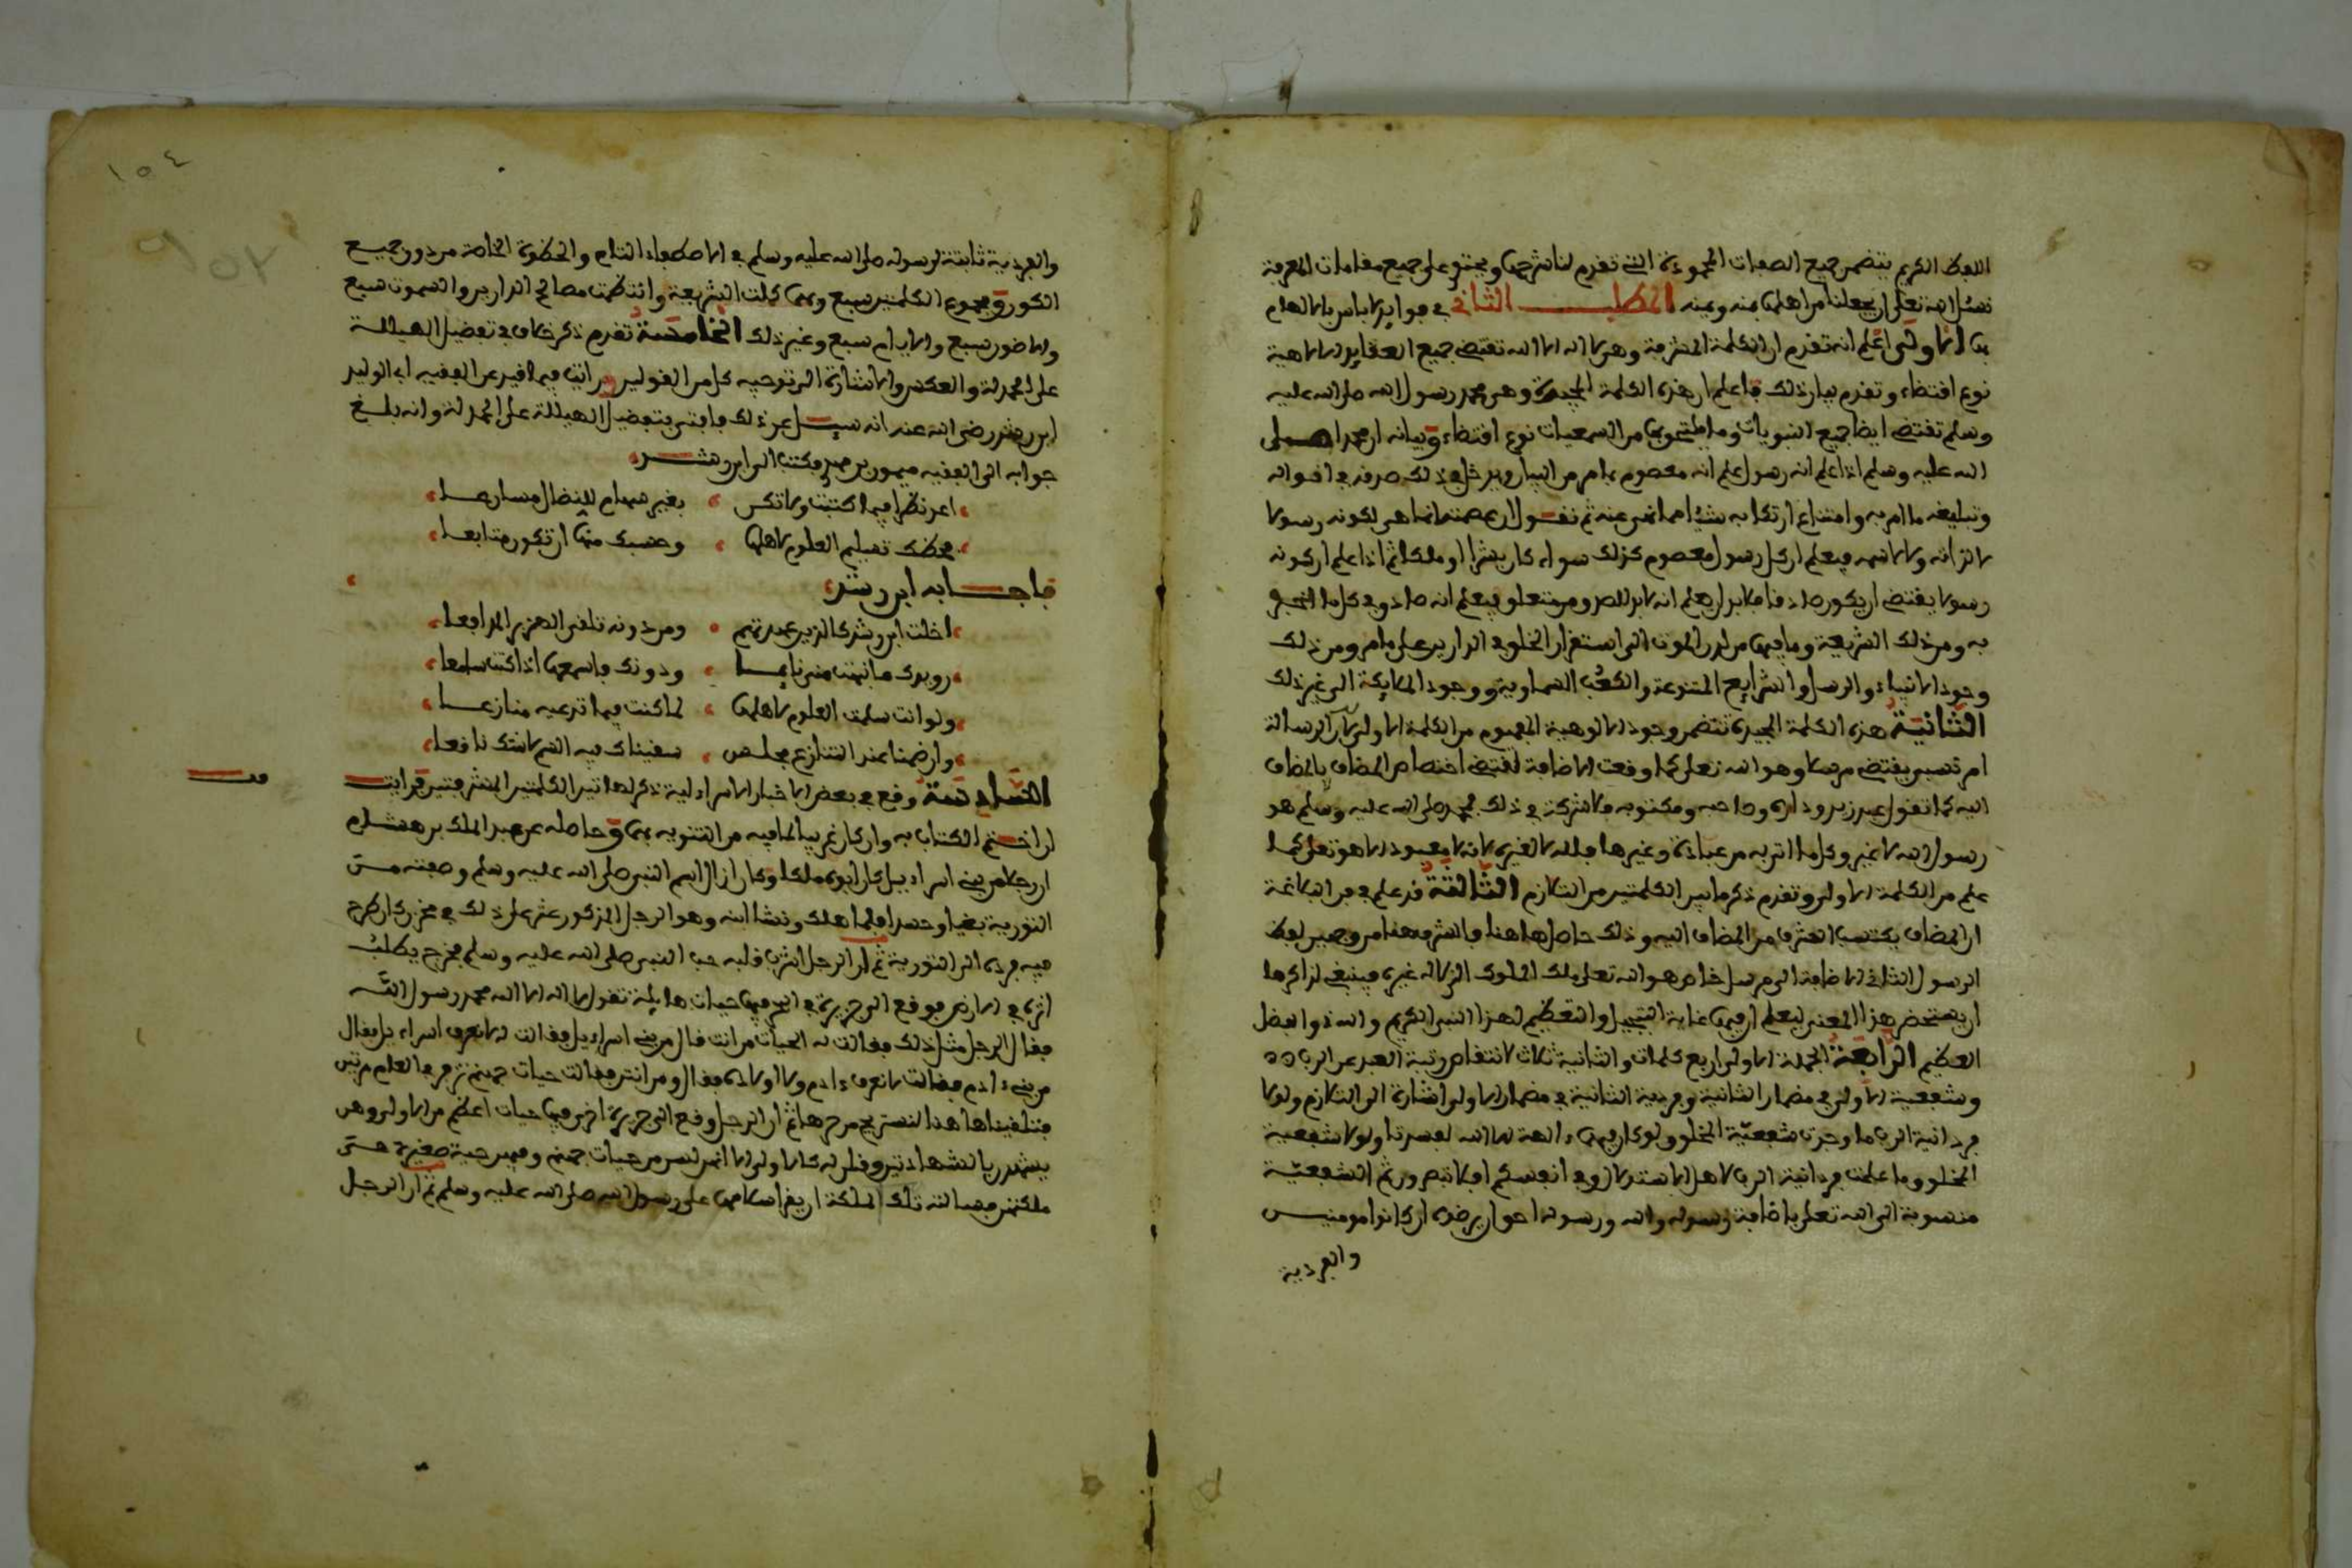 اللفظ الكريم يتضمن جميع الصفات المحمودة التي تقدم لنا شرحها ويحتوي على جميع مقامات المعرفة
نسئل الله تعلى ان يجعلنا من اهلها بمنه ويمنه المطلب الثاني في فوايد لا باس بالالمام
بها الاولى اعلم انه تقدم ان الكلمة المشرفة وهي لا اله الا الله تقتضي جميع العقايد الالاهية
نوع اقتضاء وتقدم بيان ذلك فاعلم ان هذه الكلمة المجيدة وهي محمد رسول الله صلى الله عليه
وسلم تقتضي ايضا جميع النبويات وما يلتحق بها من السمعيات نوع اقتضاء وبيانه ان محمدا صلى
الله عليه وسلم اذا علم انه رسول علم انه معصوم بما مر من البيان ويدخل في ذلك صدقه في اقواله
وتبليغه ما امر به وامتناع ارتكابه شيئا مما نهي عنه ثم نقول ان عصمته انما هي لكونه رسولا
لا لذاته ولا لاسمه فيعلم ان كل رسول معصوم كذلك سواء كان بشرا او ملكا ثم اذا علم ان كونه
رسولا يقتضي ان يكون صادقا فلا بد ان يعلم انه لا بد للصدق من متعلق فيعلم انه صادق في كل ما اخبر
به ومن ذلك الشريعة وما فيها من لدن الموت الى استقرار الخلق في الدارين على ما مر ومن ذلك
وجود الانبياء والرسل والشرايع المتنوعة والكتب السماوية ووجود الملايكة الى غير ذلك
الثانية هذه الكلمة المجيدة تتضمن وجود الالوهية المفهوم من الكلمة الاولى لان الرسالة
امر نسبي يقتضي مرسلا وهو الله تعلى كما وقعت الاضافة لتقتضي اختصاص المضاف بالمضاف
اليه كما تقول عبد زيد وداره وصاحبه ومكتوبه فلا شركة في ذلك فمحمد صلى الله عليه وسلم هو
رسول الله لا غير وكل ما اتى به من عبادة وغيرها فلله لا لغيره لانه لا معبود الا هو تعلى كما
علم من الكلمة الاولى وتقدم ذكر ما بين الكلمتين من التلازم الثالثة قد علم في فن البلاغة
ان المضاف يكتسب الشرف من المضاف اليه وذلك حاصل هاهنا فالشرف هنا من وجهين لفظ
الرسول الثاني الاضافة الى مرسل خاص هو الله تعلى ملك الملوك الذي لا اله غيره فينبغي لذاكرها
ان يستحضر هذا المعنى ليعلم ان فيها غاية التبجيل والتعظيم لهذا النبي الكريم والله ذو الفضل
العظيم الرابعة الجملة الاولى اربع كلمات والثانية ثلاث لانتقاص رتبة العبد عن الرب
وشفعية الاولى في مضمار الثانية وفردية الثانية في مضمار الاولى اشارة الى التلازم ولولا
فردانية الرب ما وجدت شفعية الخلق ولو كان فيهما ءالهة الا الله لفسدتا ولولا شفعية
الخلق وما علمت فردانية الرب لاهل الاستدلال وفي انفسكم افلا تبصرون ثم الشفعية
منسوبة الى الله تعلى باضافة رسوله والله ورسوله احق ان يرضوه ان كانوا مومنين
والفردية
١٥٤
والفردية ثابتة لرسوله صلى الله عليه وسلم في الاصطفاء التام والحظوة الخاصة من دون جميع
الكون ومجموع الكلمتين سبع وبها كملت الشريعة وانتظمت مصالح الدارين والسموت سبع
والارضون سبع والايام سبع وغير ذلك الخامسة تقدم ذكر خلاف في تفضيل الهيللة
على الحمدلة والعكس والاشارة الى توجيه كل من القولين ورايت فيما قيد عن الفقيه ابي الوليد
ابن رشد رضي الله عنه انه سيل عن ذلك فافتى بتفضيل الهيللة على الحمدلة وانه بلغ
جوابه الى الفقيه ميمون بن حميد فكتب الى ابن رشد
اعد نظرا فيما كتبت ولا تكن بغير سهام للنضال مسارعا
فحظك تسليم العلوم لاهلها وحسبك منها ان تكون متابعا
فاجابه ابن رشد
اخلت ابن رشد كالذين عهدتهم ومن دونه تلقى الهزبر المدافعا
رويدك ما نبهت مني نايما ودونك فاسمعها اذا كنت سامعا
ولو انت سلمت العلوم لاهلها لما كنت فيما تدعيه منازعا
وان ضمنا عند التنازع مجلس سقيناك فيه السم لا شك ناقعا
السادسة وقع في بعض الاخبار الاسراءيلية ذكر لهاتين الكلمتين المشرفتين فرايت
ان اختم الكتاب به وان كان غريبا لما فيه من التنويه بها وحاصله عن عبد الملك بن هشام
ان رجلا من بني اسراءيل كان ابوه ملكا وكان ازال اسم النبي صلى الله عليه وسلم وصفته من
التورية بغيا وحسدا فلما هلك ونشا ابنه وهو الرجل المذكور عثر على ذلك في مخزن كان طرح
فيه فرده الى التورية ثم ان الرجل اشرب قلبه حب النبي صلى الله عليه وسلم فخرج يطلب
اثره في الارض فوقع الى جزيرة في البحر فيها حيات هايلة تقول لا اله الا الله محمد رسول الله
فقال الرجل مثل ذلك فقالت له الحيات من انت قال من بني اسراءيل فقالت له لا نعرف اسراءيل فقال
من بني ءادم فقالت لا نعرف ءادم ولا اولاده فقال ومن انتن فقالت حيات جهنم تزفر في العام مرتين
فتلقينا هاهنا لنستريح من حرها ثم ان الرجل وقع الى جزيرة اخرى فيها حيات اعظم من الاولى وهن
يشهدن بالشهادتين وقلن له كالاولى الا انهن لسن من حيات جهنم وفيهن حية صغيرة هي
ملكتهن فسالته تلك الملكة ان يقرا سلامها على رسول الله صلى الله عليه وسلم ثم ان الرجل